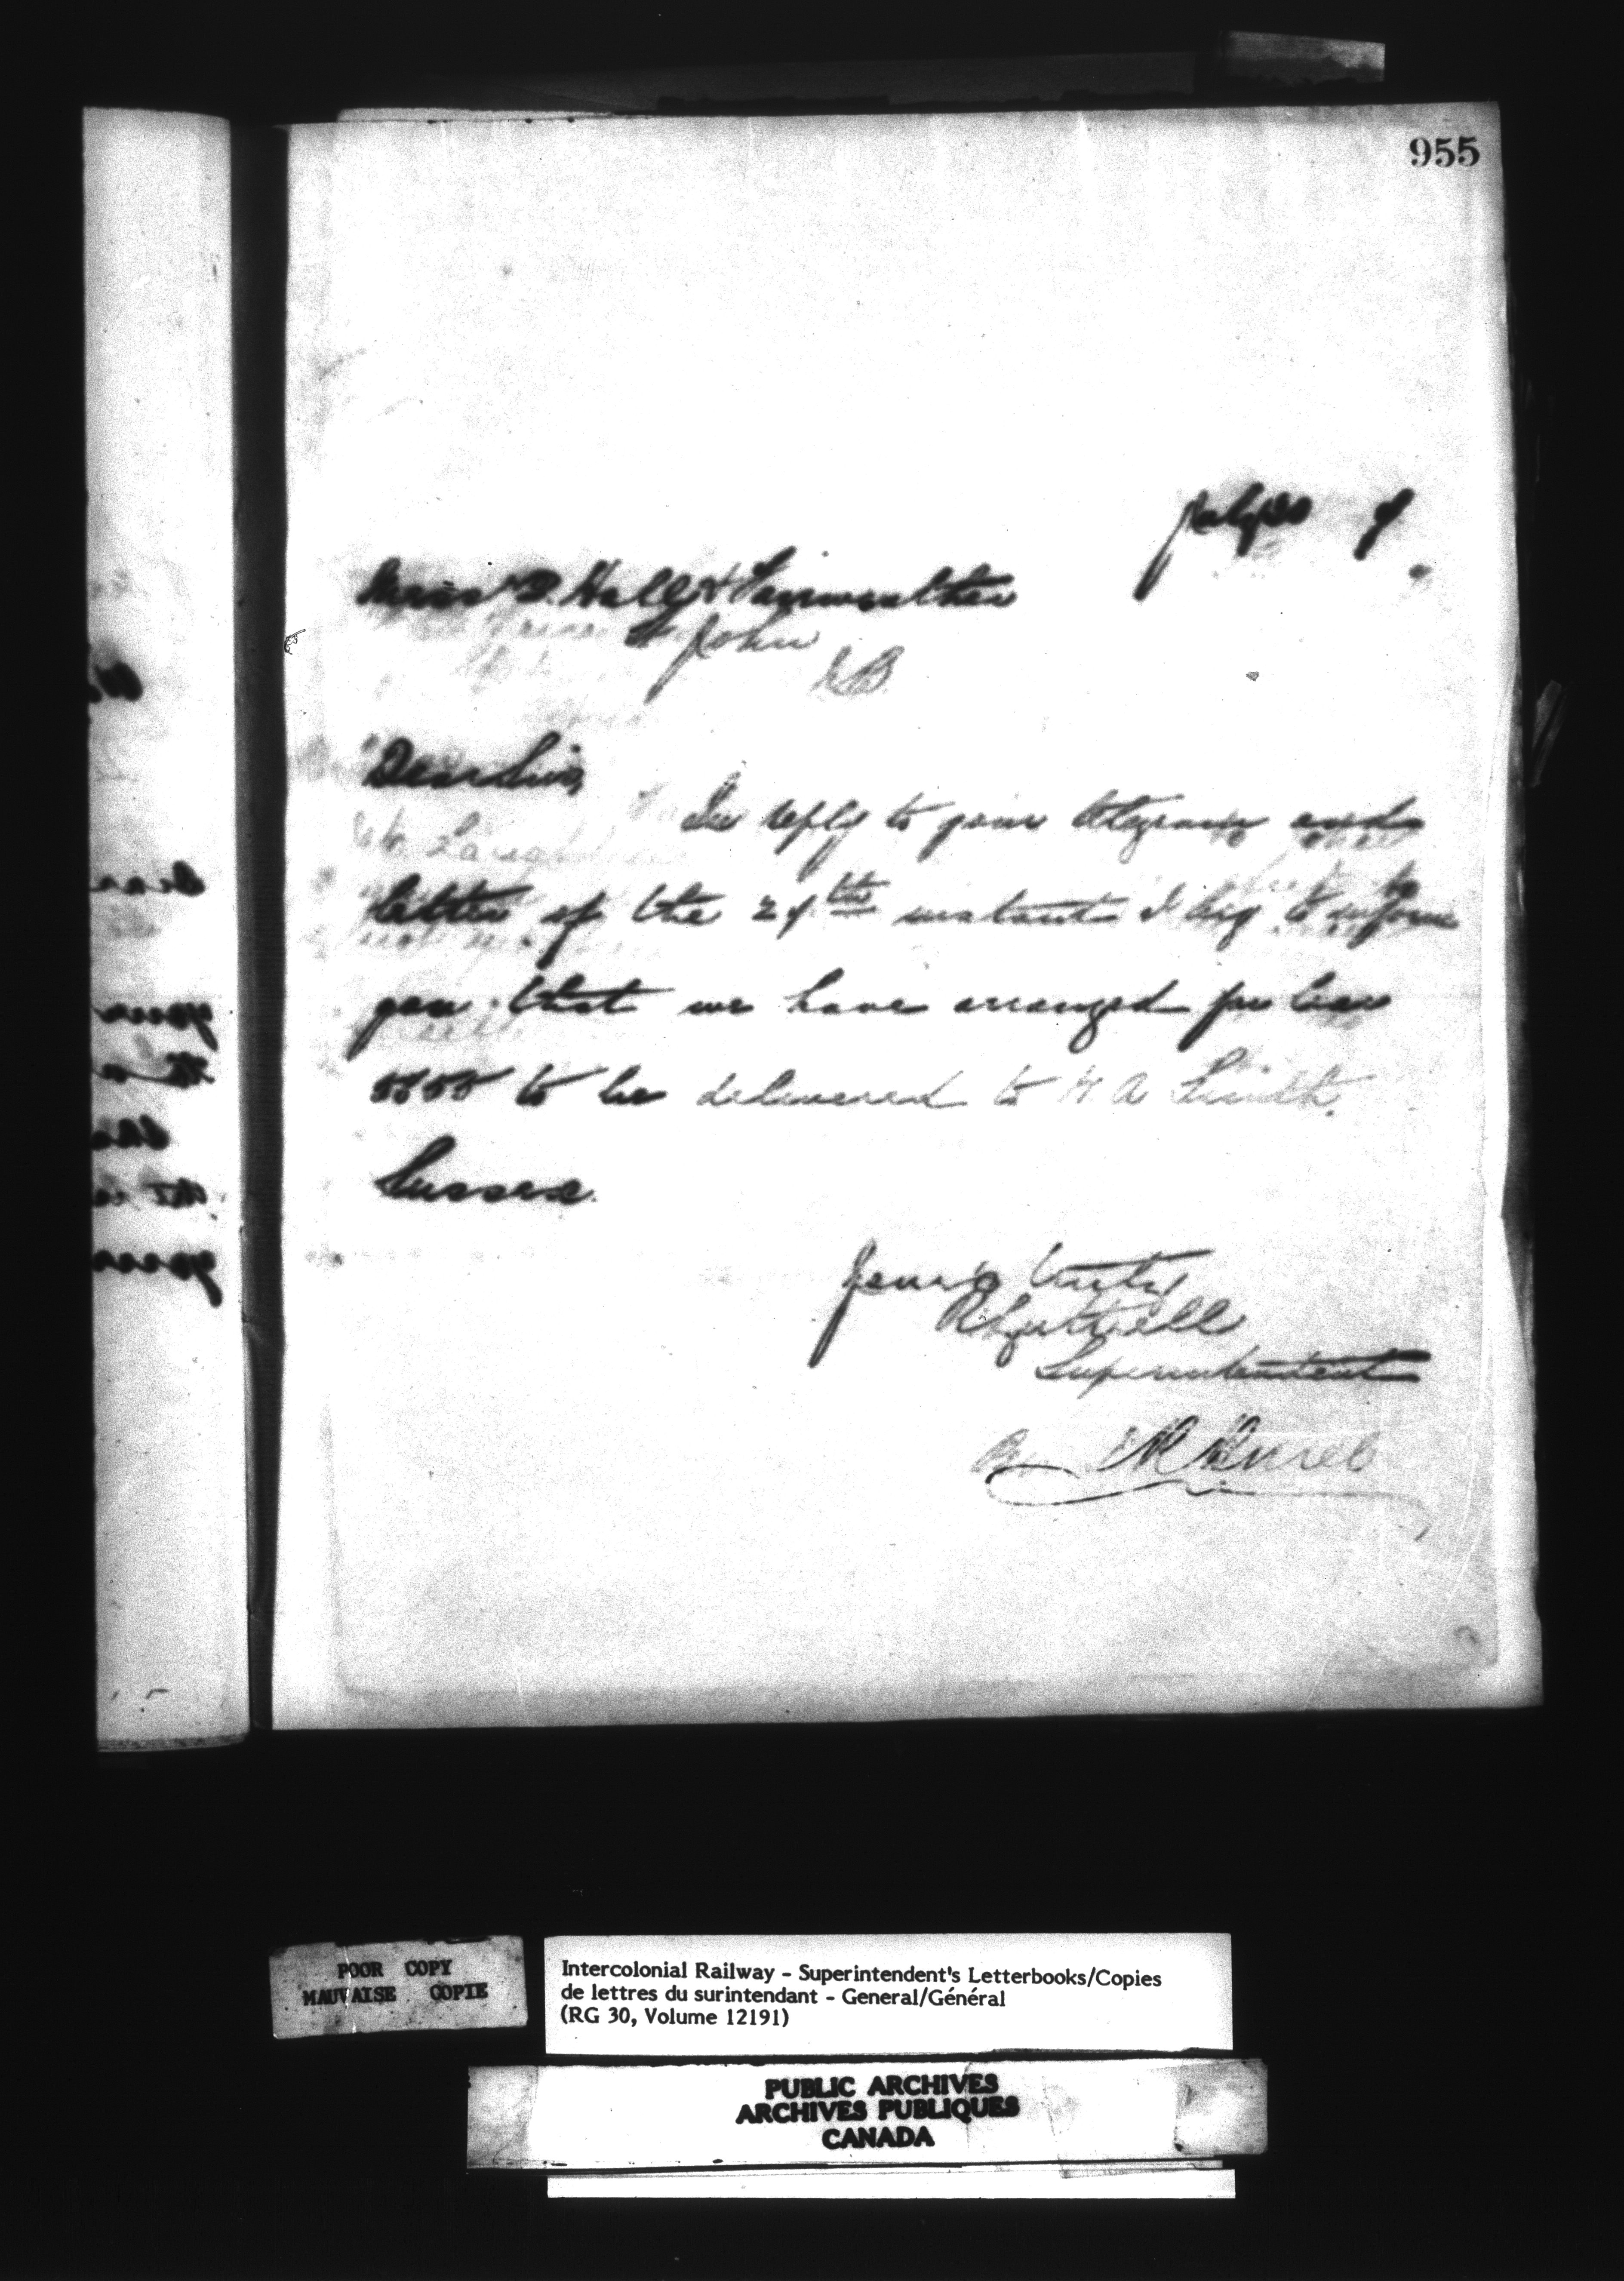 955
July 30
Hall & Fairweather
St John
N.B.
Dear Sirs,
In reply to your telegram and
letter of the 29th instant I beg to inform
you that we have arranged for
to be delivered to A
Sussex.
Yours truly
Superintendent
POOR COPY
MAUVAISE COPIE
Intercolonial Railway - Superintendent's Letterbooks/Copies
de lettres du surintendant - General/Général
(RG 30, Volume 12191)
PUBLIC ARCHIVES
ARCHIVES PUBLIQUES
CANADA